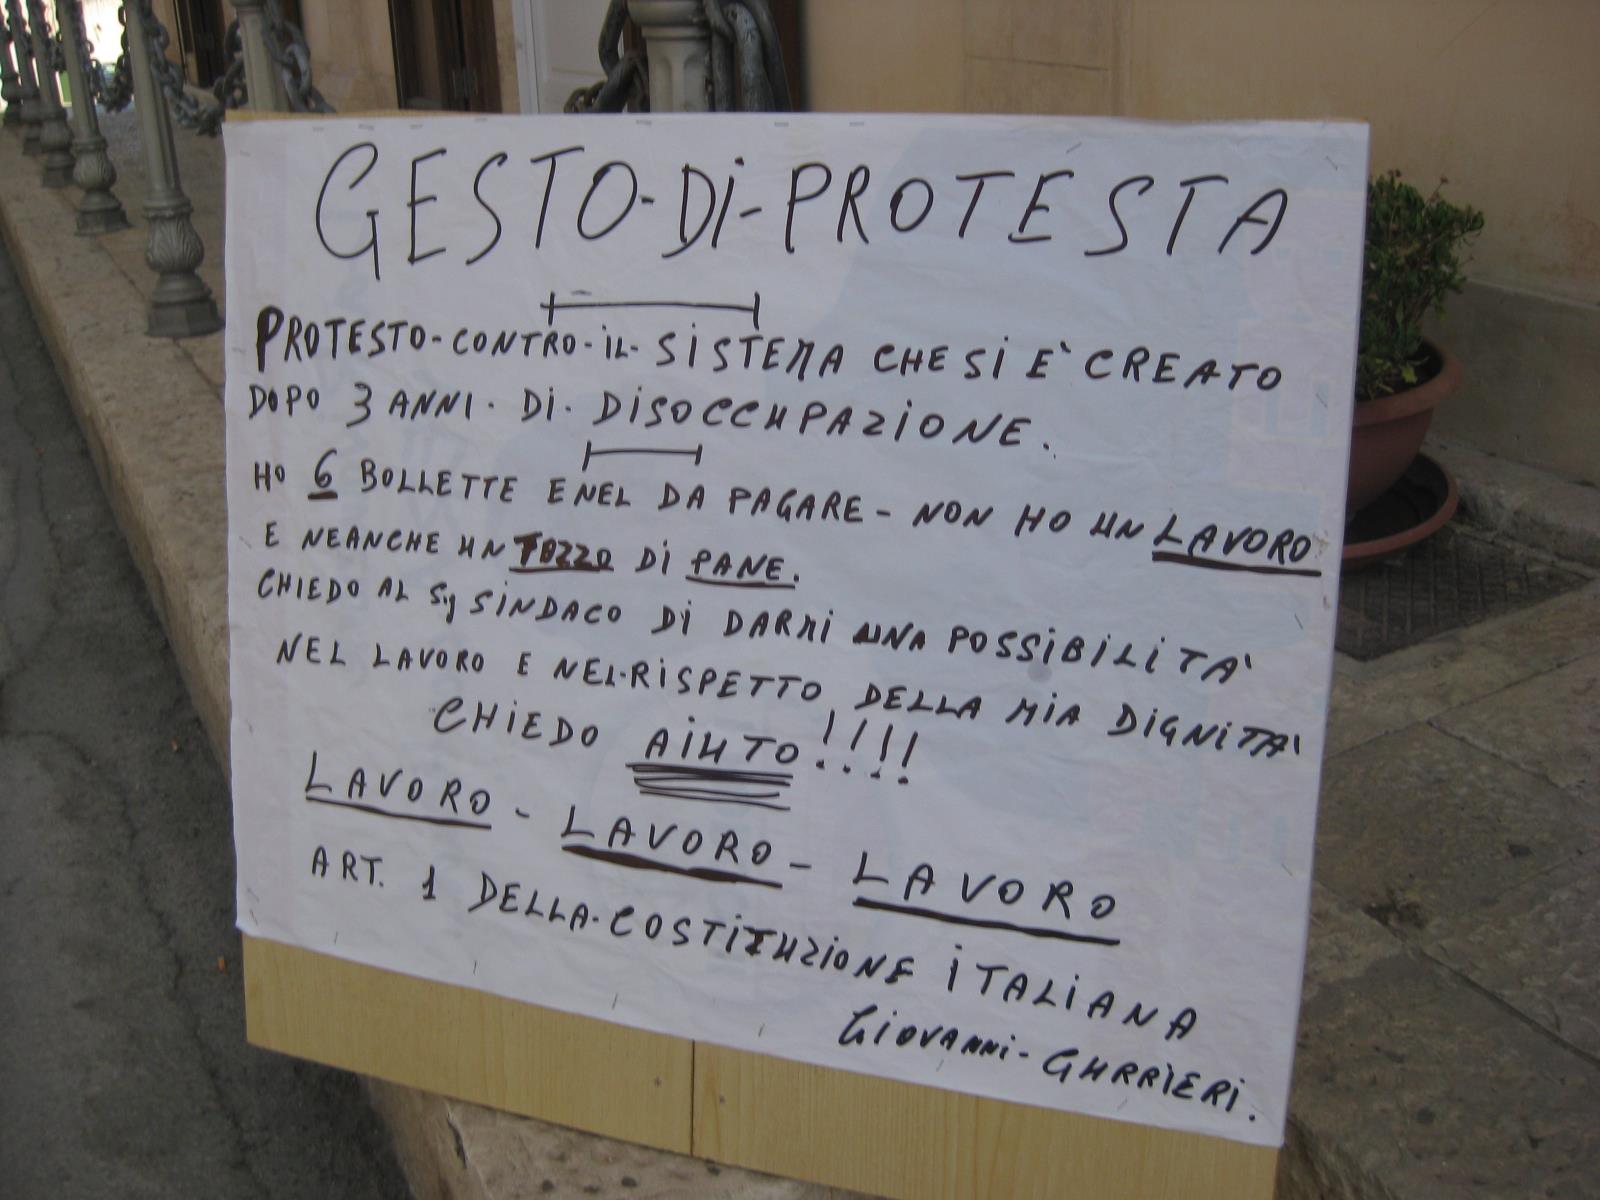 GESTO-Di-PROTESTA
PROTESTO-CONTRO-iL-SiSTEMA CHE SI E' CREATO
DOPO 3 ANNI. Di. DiSOCCUPAZiONE.
HO 6 BOLLETTE ENEL DA PAGARE - NON HO UN LAVORO
E NEANCHE UN TOZZO Di PANE.
CHIEDO AL Sig SiNDACO Di DARMi UNA POSSiBiLiTA'
NEL LAVORO E NEL-RiSPETTO DELLA MiA DiGNiTA'
CHiEDO AiUTO!!!!
LAVORO - LAVORO - LAVORO
ART. 1 DELLA-COSTiTUZiONE iTALiANA
GiOVANNi-GURRiERi.